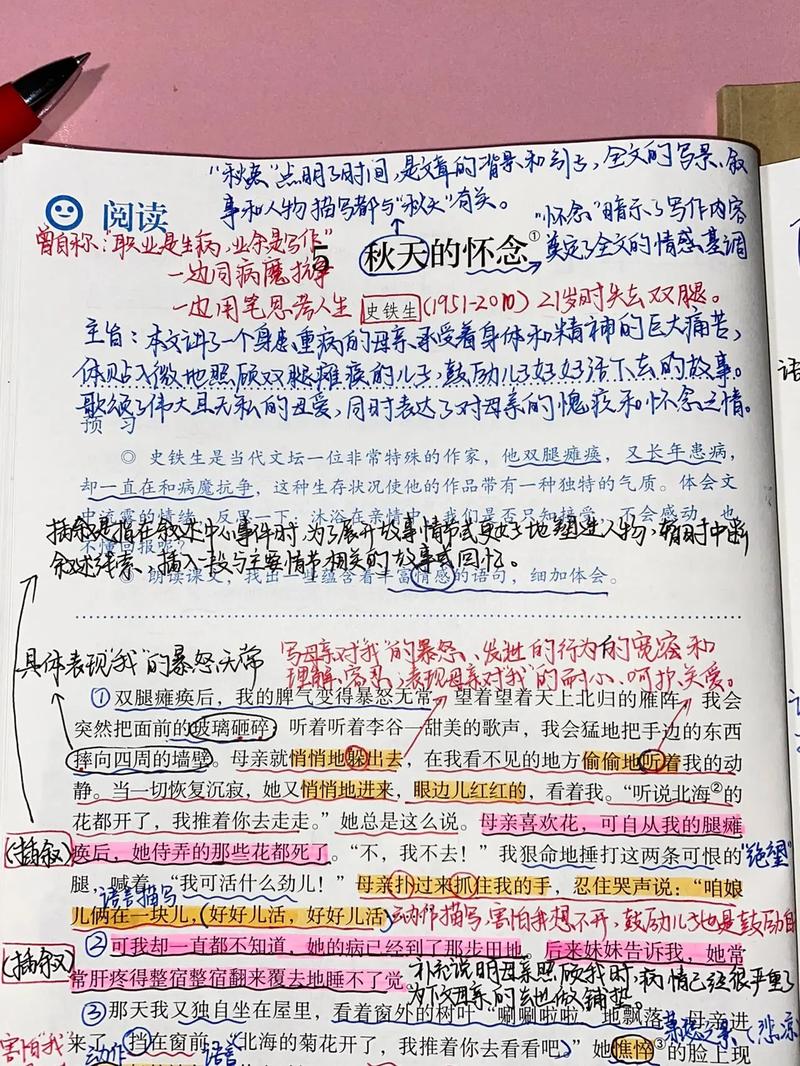 "秋天"点明了时间,是文章的背景和引子,全文的写景、叙
事和人物描写都与"秋天"有关。
阅读
"怀念"暗示了写作内容
曾自称:"职业是生病,业余是写作"
5 秋天的怀念①
奠定了全文的情感基调
一边同病魔抗争
一边用笔思考人生
史铁生(1951-2010) 21岁时失去双腿。
主旨:本文讲了一个身患重病的母亲,承受着身体和精神的巨大痛苦,
体贴入微地照顾双腿瘫痪的儿子,鼓励儿子好好活下去的故事。
歌颂了伟大且无私的母爱,同时表达了对母亲的愧疚和怀念之情。
预 习
◎ 史铁生是当代文坛一位非常特殊的作家,他双腿瘫痪,又长年患病,
却一直在和病魔抗争,这种生存状况使他的作品带有一种独特的气质。体会文
中流露的情绪,反思一下:沐浴在亲情中,我们是否只知接受,不会感动,也
不懂回报呢?
插叙是指在叙述中心事件时,为了展开故事情节或更好地塑造人物,暂时中断
叙述线索,插入一段与主要情节相关的故事或回忆。
◎ 朗读课文,找出一些蕴含着丰富情感的语句,细加体会。
具体表现"我"的暴怒无常
写母亲对"我"的暴怒、发泄的行为的宽容和
理解、容忍,表现母亲对"我"的耐心、呵护、关爱。
①双腿瘫痪后,我的脾气变得暴怒无常。望着望着天上北归的雁阵,我会
突然把面前的玻璃砸碎;听着听着李谷一甜美的歌声,我会猛地把手边的东西
摔向四周的墙壁。母亲就悄悄地躲出去,在我看不见的地方偷偷地听着我的动
静。当一切恢复沉寂,她又悄悄地进来,眼边儿红红的,看着我。"听说北海②的
花都开了,我推着你去走走。"她总是这么说。母亲喜欢花,可自从我的腿瘫
(插叙)
痪后,她侍弄的那些花都死了。"不,我不去!"我狠命地捶打这两条可恨的
"绝望"
腿,喊着,"我可活什么劲儿!"母亲扑过来抓住我的手,忍住哭声说:"咱娘
语言描写
儿俩在一块儿,好好儿活,好好儿活
动作描写,害怕我想不开,鼓励儿子也是鼓励自
②可我却一直都不知道,她的病已经到了那步田地。后来妹妹告诉我,她常
(插叙)
常肝疼得整宿整宿翻来覆去地睡不了觉
补充说明母亲照顾我时,病情已经很严重了
为下文母亲的去世做铺垫。
③那天我又独自坐在屋里,看着窗外的树叶"唰唰啦啦"地飘落。母亲进
害怕"我"
来了,挡在窗前:"北海的菊花开了,我推着你去看看吧。"她憔悴③的脸上现
动作
语言